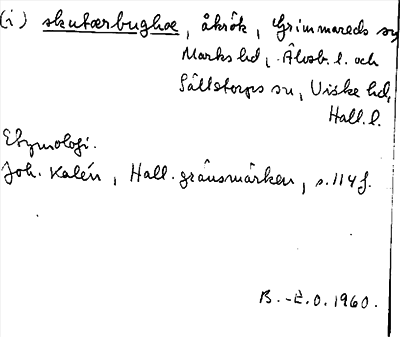 (i) skutærbughæ, åkrök, Grimmareds sn
Marks hd, Älvsb. l. och
Sällstorps sn, Viske hd,
Hall. l.
Etymologi.
Joh. Kalén, Hall. gränsmärken, s. 114 f.
B.-E.O. 1960.